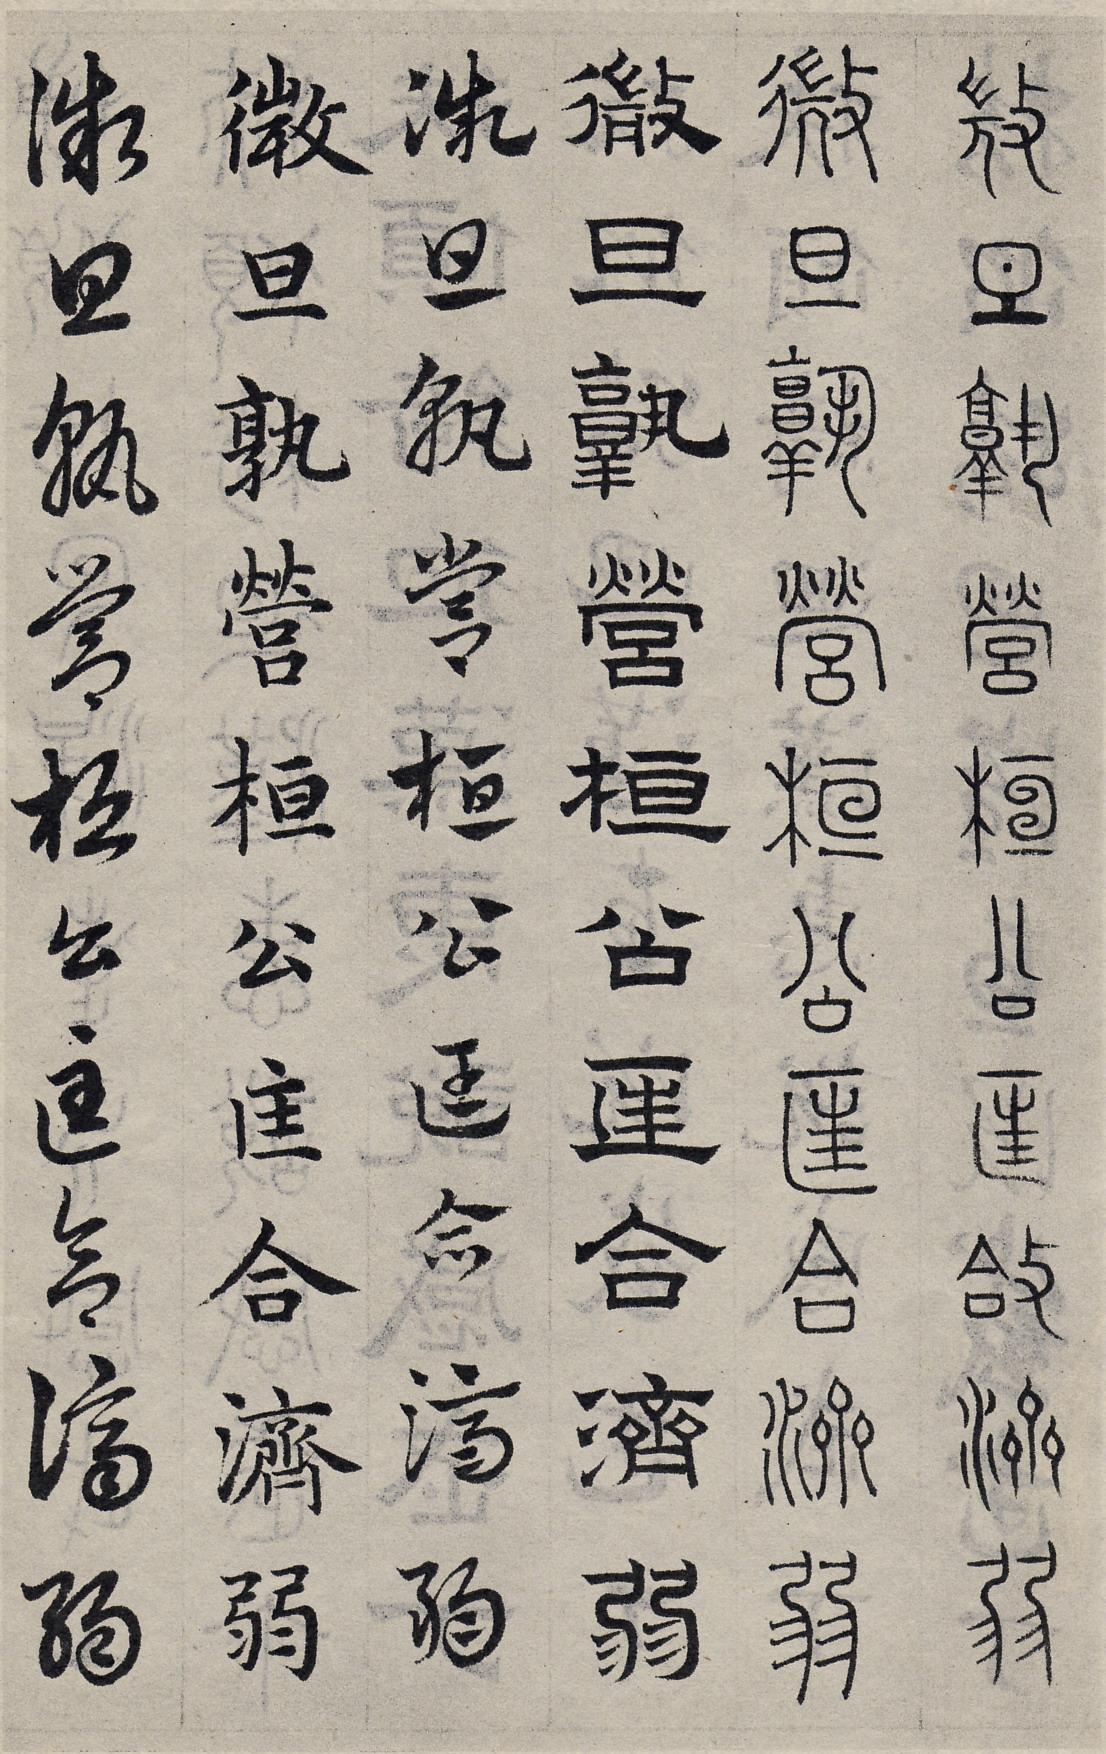 微旦孰營桓公匡合濟弱
微旦孰營桓公匡合濟弱
微旦孰營桓公匡合濟弱
微旦孰營桓公匡合濟弱
微旦孰營桓公匡合濟弱
微旦孰營桓公匡合濟弱